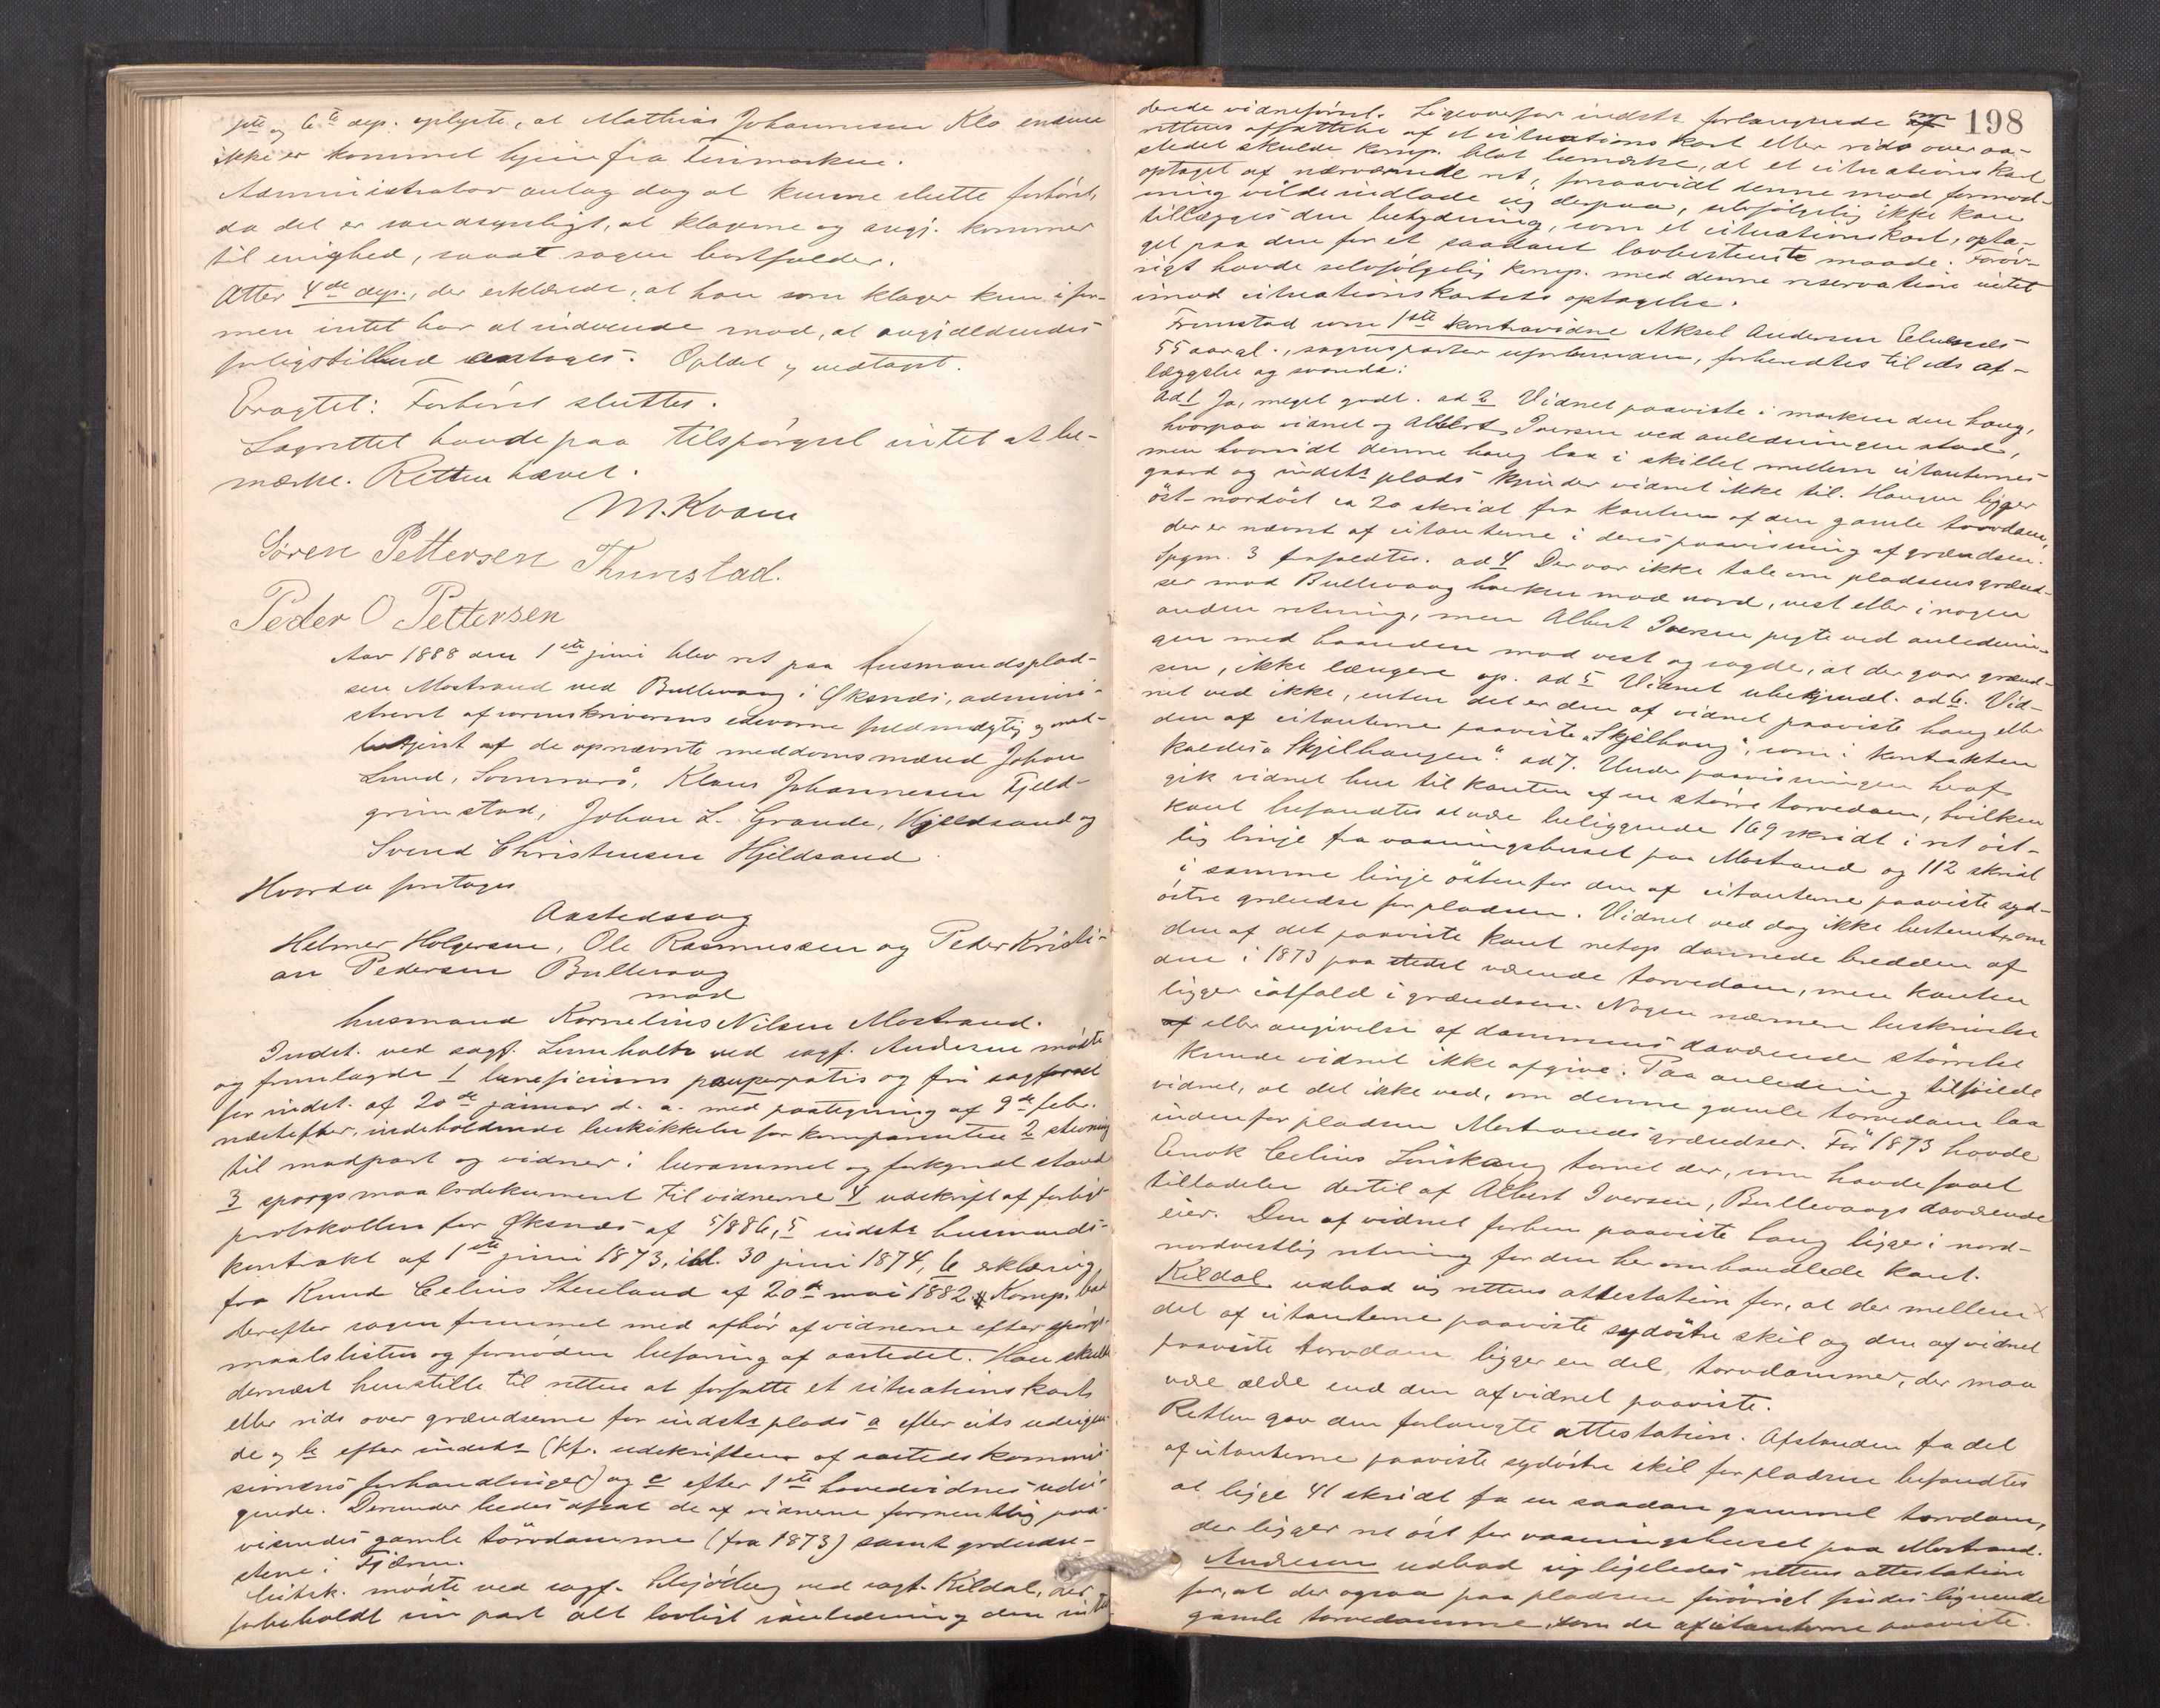 5te og 6te dep. oplyste, at Mathias Johannesen Klo endnu
ikke er kommet hjem fra Finmarken.
Administrator antog dog at kunne slutte forhöret,
da det er sandsynligt, at klagerne og angj. kommer
til enighed, saaat sagen bortfalder.
Atter 4de dep., der erklærede, at han som klager kun i for-
men intet har at indvende mod, at angjældendes
forligstilbud antages. Oplæst og vedtaget.
Eragtet: Forhöret sluttes.
Lagrettet havde paa tilspörgsel intet at be-
mærke. Retten hævet.
M. Kvam
Sören Pettersen Thunstad.
Peder O Pettersen
Aar 1888 den 1ste juni blev ret paa husmandsplad-
sen Mostrand ved Bullevaag i Öksnes, admini-
streret af sorenskriverens edsvorne fuldmægtig og med-
betjent af de opnævnte meddomsmænd Johan
Lund, Sommarö, Klaus Johannesen Fjeld-
grimstad, Johan L. Grande, Hjeldsand og
Svend Christensen Hjeldsand.
Hvorda foretoges
Aastedssag
Helmer Holgersen, Ole Rasmussen og Peder Kristi-
an Pedersen Bullevaag
mod
husmand Kornelius Nilsen Mostrand.
Indst. ved sagf. Lumholtz ved sagf. Andersen mödte
og fremlagde 1 beneficium paupertatis og fri sagförsel
for indst. af 20de januar d. a. med paategning af 9de febr.
næstefter, indeholdende beskikkelse for komparenten 2 stevning
til modpart og vidner i berammet og forkyndt stand
3 spörgsmaalsdokument til vidnerne 4 udskrift af forligs-
protokollen for Öksnes af 5/8 86, 5 indsts husmands-
kontrakt af 1ste juni 1873, thl. 30 juni 1874, 6 erklæring
fra Knud Celius Steinland af 20de mai 1882. Komp. bad
derefter sagen fremmet med afhör af vidnerne efter spörgs-
maalslisten og fornöden befaring af aastedet. Han skulde
dernæst henstille til retten at forfatte et situationskart
eller rids over grændserne for indsts plads a efter cits udsigen-
de og b efter indsts (kfr. udskriften af aastedskommis-
sionens forhandlinger) og c efter 1ste hovedvidnes udsi-
gende. Derunder bedes afsat de af vidnerne formentlig paa-
visendes gamle torvdamme (fra 1873) samt grændse-
stene i Fjæren.
Citstk. mödte ved sagf. Skjölberg ved sagf. Kildal, der
forbeholdt sin part alt lovligt i anledning den indst
198
derede vidneförsel. Ligeoverfor indsts forlangende om
rettens affattelse af et situationskart eller rids over aa-
stedet skulde komp. blot bemærke, at et situationskart
optaget af nærværende ret, forsaavidt denne mod formod-
ning vilde indlade sig derpaa, selvfölgelig ikke kan
tillægges den betydning, som et situationskart, opta-
get paa den for et saadant lovbestemte maade. Foröv-
rigt havde selvfölgelig komp. med denne reservation intet
imod situationskartets optagelse.
Fremstod som 1ste kontravidne Aksel Andersen Elvenæs
55 aar gl., sagens parter ubeslægtet, forberedtes til eds af-
læggelse og svarede:
ad 1 Ja, meget godt. ad 2 Vidnet paaviste i marken den haug,
hvorpaa vidnet og Albert Iversen ved anledningen stod,
men hvorvidt denne haug laa i skillet mellem citanternes
gaard og indsts plads kjender vidnet ikke til. Haugen ligger
öst-nordöst ca 20 skridt fra kanten af den gamle torvdam,
der er nævnt af citanterne i deres paavisning af grændsen.
Spgm. 3 frafaldtes. ad 4 Der var ikke tale om pladsens grænd-
ser mod Bullevaag hverken mod nord, vest eller i nogen
anden retning, men Albert Iversen pegte ved anlednin-
gen med haanden mod vest og sagde, at der gaar grænd-
sen, ikke længere op. ad 5 Vidnet ubekjendt. ad 6. Vid-
net ved ikke, enten det er den af vidnet paaviste haug eller
den af citanterne paaviste "Skjelhaug", som i kontrakten
kaldes "Skjelhaugen". ad 7. Under paavisningen heraf
gik vidnet hen til kanten af en större torvedam, hvilken
kant befandtes at være beliggende 169 skridt i ret öst-
lig linje fra vaaningshuset paa Mostrand og 112 skridt
i samme linje östenfor den af citanterne paaviste syd-
östre grændse for pladsen. Vidnet ved dog ikke bestemt, om
den af det paaviste kant netop dannede bredden af
den i 1873 paa stedet værende torvedam, men kanten
ligger iatfald i grændsen. Nogen nærmere beskrivelse
eller angivelse af dammens daværende störrelse
kunde vidnet ikke afgive. Paa anledning tilföiede
vidnet, at det ikke ved, om denne gamle torvedam laa
indenfor pladsen Mostrands grændser. För 1873 havde
Enok Celius Linskaug torvet der, som havde faaet
tilladelse dertil af Albert Iversen, Bullevaags daværende
eier. Den af vidnet forhen paaviste haug ligger i nord-
nordvestlig retning for den her omhandlede kant.
Kildal udbad sig rettens attestation for, at der mellem
det af citanterne paaviste sydöstre skil og den af vidnet
paaviste torvdam ligger en del torvdammer, der maa
være ældre end den af vidnet paaviste.
Retten gav den forlangte attestation. Afstanden fra det
af citanterne paaviste sydöstre skil for pladsen befandtes
at ligge 41 skridt fra en saadan gammel torvdam,
der ligger ret öst for vaaningshuset paa Mostrand.
Andersen udbad sig ligeledes rettens attestation
for, at der ogsaa paa pladsen forövrigt findes lignende
gamle torvedamme, som de af citanterne paaviste.